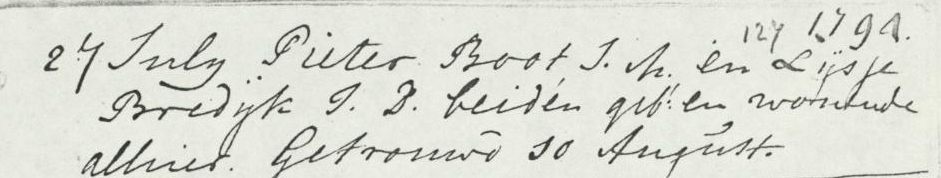 127 1791.
27 July Pieter Boot J. M. en Lijsje
Bredijk J. D. beiden geb: en woonende
alhier. Getrouwd 10 August.